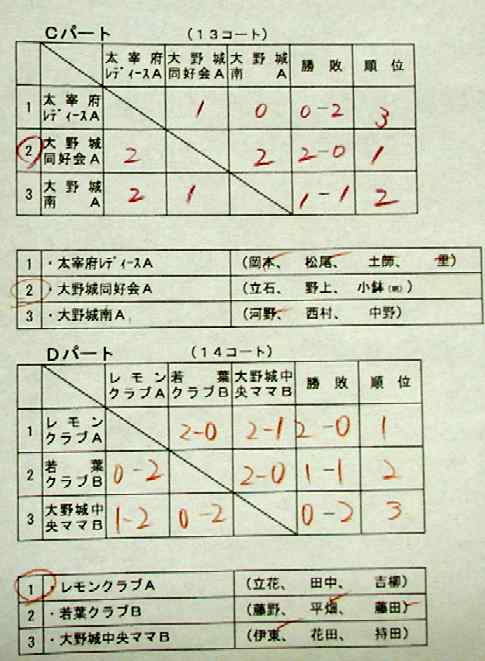 Cパート (13コート)
太宰府レディースA 大野城同好会A 大野城南A 勝敗 順位
1 太宰府レディースA 1 0 0-2 3
2 大野城同好会A 2 2 2-0 1
3 大野城南A 2 1 1-1 2
1 ・太宰府レディースA (岡本、 松尾、 土師、 里)
2 ・大野城同好会A (立石、 野上、 小鉢)
3 ・大野城南A (河野、 西村、 中野)
Dパート (14コート)
レモンクラブA 若葉クラブB 大野城中央ママB 勝敗 順位
1 レモンクラブA 2-0 2-1 2-0 1
2 若葉クラブB 0-2 2-0 1-1 2
3 大野城中央ママB 1-2 0-2 0-2 3
1 ・レモンクラブA (立花、 田中、 吉柳)
2 ・若葉クラブB (藤野、 平畑、 藤田)
3 ・大野城中央ママB (伊東、 花田、 持田)